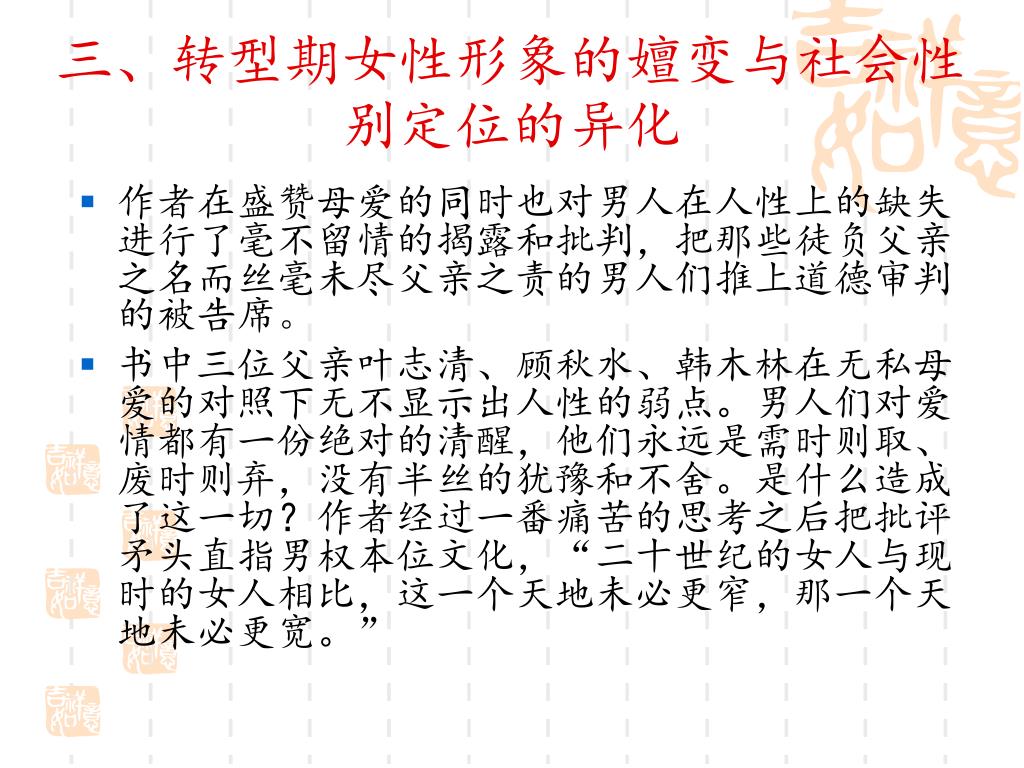 三、转型期女性形象的嬗变与社会性
别定位的异化
作者在盛赞母爱的同时也对男人在人性上的缺失
进行了毫不留情的揭露和批判，把那些徒负父亲
之名而丝毫未尽父亲之责的男人们推上道德审判
的被告席。
书中三位父亲叶志清、顾秋水、韩木林在无私母
爱的对照下无不显示出人性的弱点。男人们对爱
情都有一份绝对的清醒，他们永远是需时则取、
废时则弃，没有半丝的犹豫和不舍。是什么造成
了这一切？作者经过一番痛苦的思考之后把批评
矛头直指男权本位文化，“二十世纪的女人与现
时的女人相比，这一个天地未必更窄，那一个天
地未必更宽。”
吉祥如意
吉祥如意
吉祥如意
吉祥如意